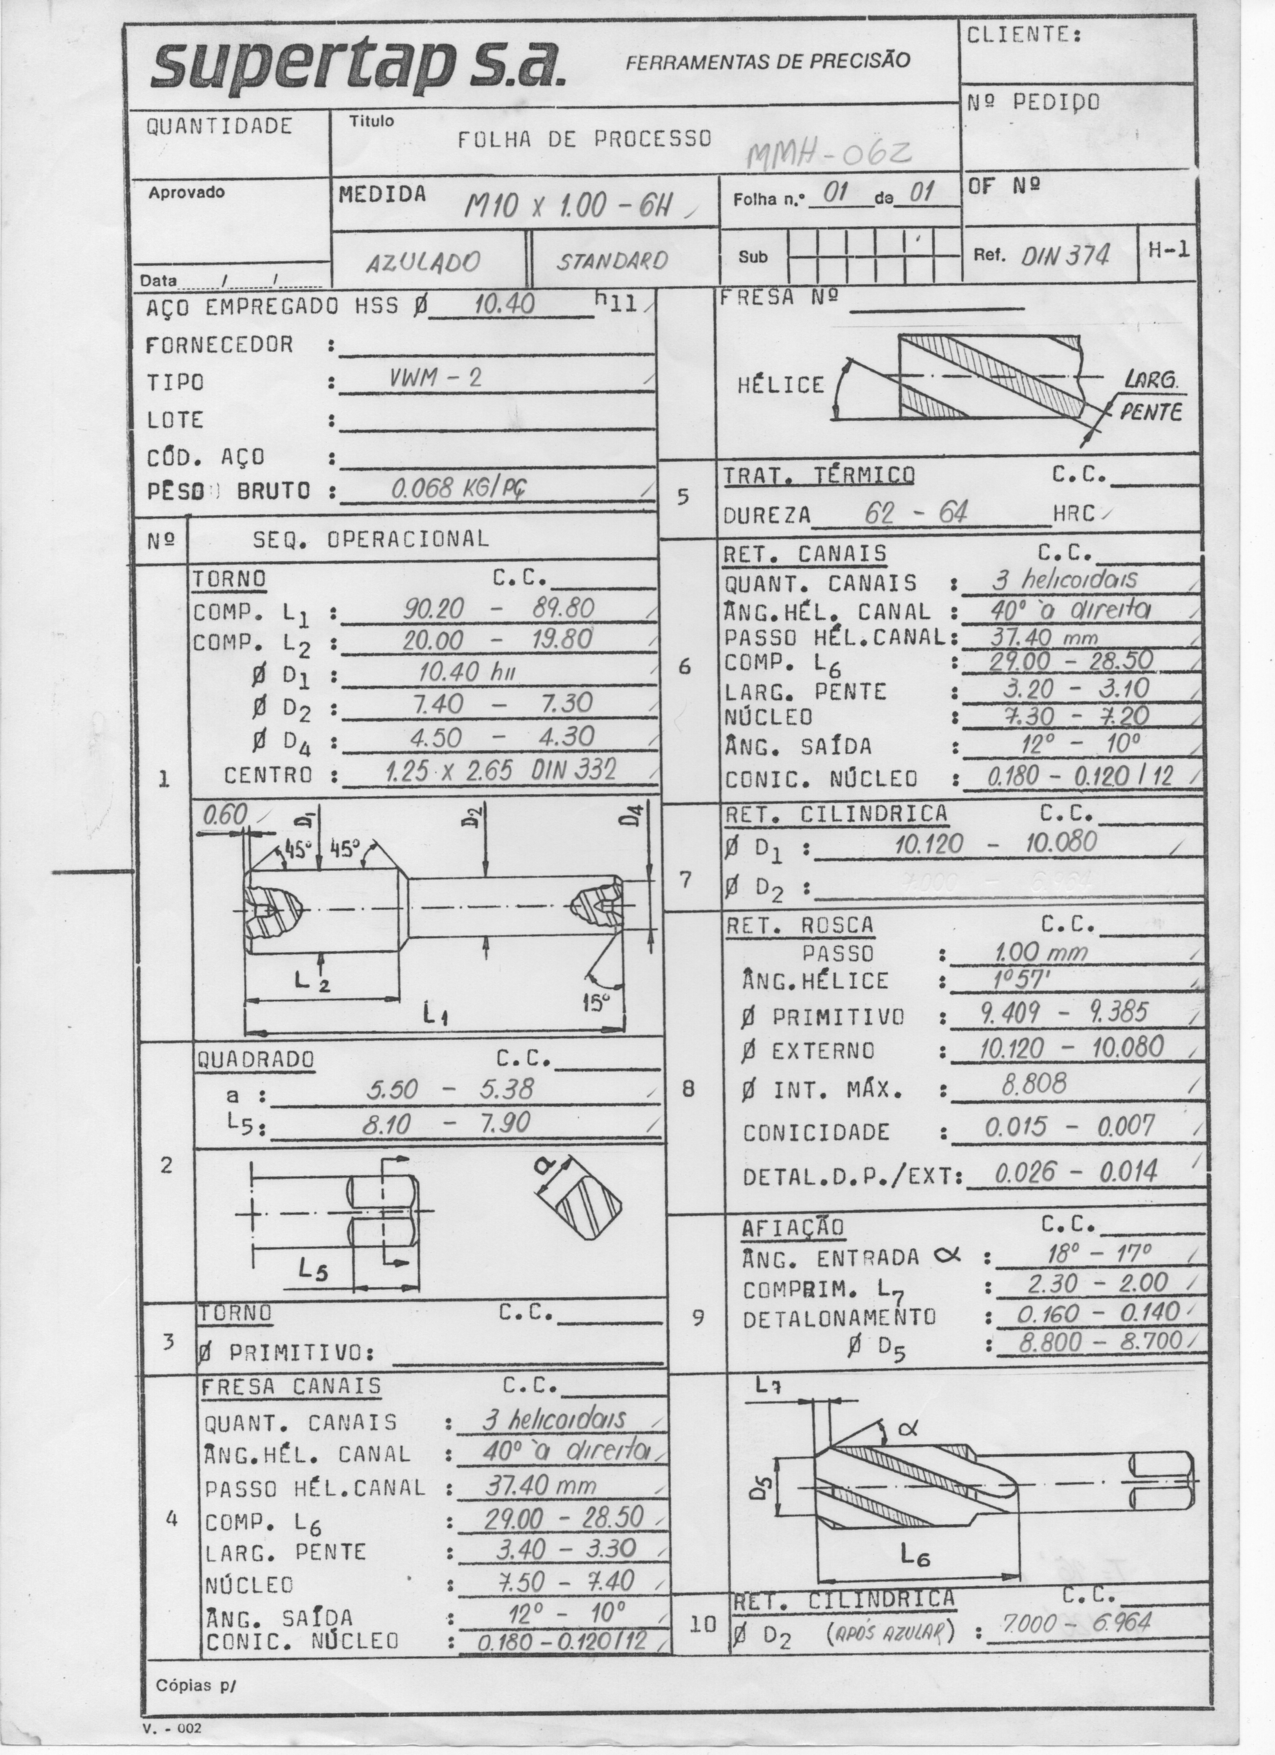 supertap s.a. FERRAMENTAS DE PRECISÃO
CLIENTE:
Nº PEDIDO
QUANTIDADE
Titulo
FOLHA DE PROCESSO
MMH-062
Aprovado
MEDIDA M10 x 1.00 - 6H
Folha n.º 01 de 01
OF Nº
AZULADO STANDARD
Sub
Ref. DIN 374
H-1
Data ....../....../......
AÇO EMPREGADO HSS Ø 10.40 h11
FORNECEDOR :
TIPO : VWM - 2
LOTE :
CÓD. AÇO :
PÊSO BRUTO : 0.068 KG/PÇ
Nº SEQ. OPERACIONAL
1
TORNO C.C.
COMP. L1 : 90.20 - 89.80
COMP. L2 : 20.00 - 19.80
Ø D1 : 10.40 h11
Ø D2 : 7.40 - 7.30
Ø D4 : 4.50 - 4.30
CENTRO : 1.25 x 2.65 DIN 332
0.60 D1 D2 D4
45° 45°
L2
15°
L1
2
QUADRADO C.C.
a : 5.50 - 5.38
L5: 8.10 - 7.90
a
L5
3
TORNO C.C.
Ø PRIMITIVO:
4
FRESA CANAIS C.C.
QUANT. CANAIS : 3 helicoidais
ÂNG.HÉL. CANAL : 40° à direita
PASSO HÉL.CANAL : 37.40 mm
COMP. L6 : 29.00 - 28.50
LARG. PENTE : 3.40 - 3.30
NÚCLEO : 7.50 - 7.40
ÂNG. SAÍDA : 12° - 10°
CONIC. NÚCLEO : 0.180 - 0.120/12
FRESA Nº
HÉLICE
LARG.
PENTE
5
TRAT. TÉRMICO C.C.
DUREZA 62 - 64 HRC
6
RET. CANAIS C.C.
QUANT. CANAIS : 3 helicoidais
ÂNG.HÉL. CANAL : 40° à direita
PASSO HÉL.CANAL: 37.40 mm
COMP. L6 : 29.00 - 28.50
LARG. PENTE : 3.20 - 3.10
NÚCLEO : 7.30 - 7.20
ÂNG. SAÍDA : 12° - 10°
CONIC. NÚCLEO : 0.180 - 0.120 / 12
7
RET. CILINDRICA C.C.
Ø D1 : 10.120 - 10.080
Ø D2 :
8
RET. ROSCA C.C.
PASSO : 1.00 mm
ÂNG.HÉLICE : 1°57'
Ø PRIMITIVO : 9.409 - 9.385
Ø EXTERNO : 10.120 - 10.080
Ø INT. MÁX. : 8.808
CONICIDADE : 0.015 - 0.007
DETAL.D.P./EXT: 0.026 - 0.014
9
AFIAÇÃO C.C.
ÂNG. ENTRADA α : 18° - 17°
COMPRIM. L7 : 2.30 - 2.00
DETALONAMENTO : 0.160 - 0.140
Ø D5 : 8.800 - 8.700
L7
α
D5
L6
10
RET. CILINDRICA C.C.
Ø D2 (APÓS AZULAR) : 7.000 - 6.964
Cópias p/
V. - 002